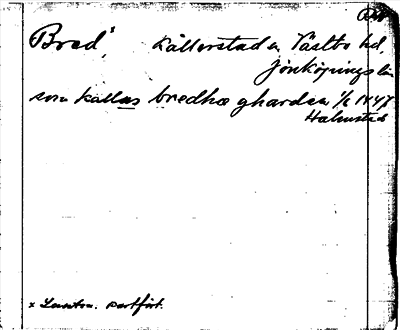 Bredˣ, Källerstad sn, Västbo hd,
Jönköpings län
som kallas bredhæ ghardsen 1/2 1447
Halmstad
x Lantm. kartfört.